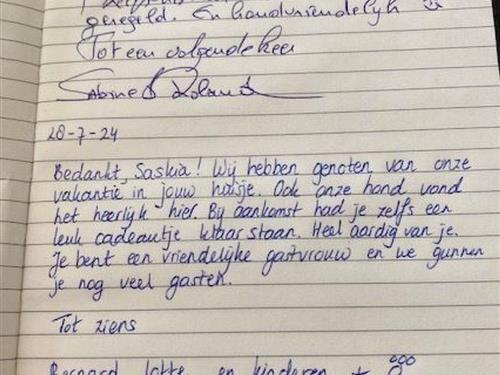 geregeld. En hondvriendelijk
Tot een volgende keer
Sabine & Roland
28-7-24
Bedankt, Saskia! Wij hebben genoten van onze
vakantie in jouw huisje. Ook onze hond vond
het heerlijk hier. Bij aankomst had je zelfs een
leuk cadeautje klaar staan. Heel aardig van je.
Je bent een vriendelijke gastvrouw en we gunnen
je nog veel gasten.
Tot ziens
Bernard, Lotte en kinderen +